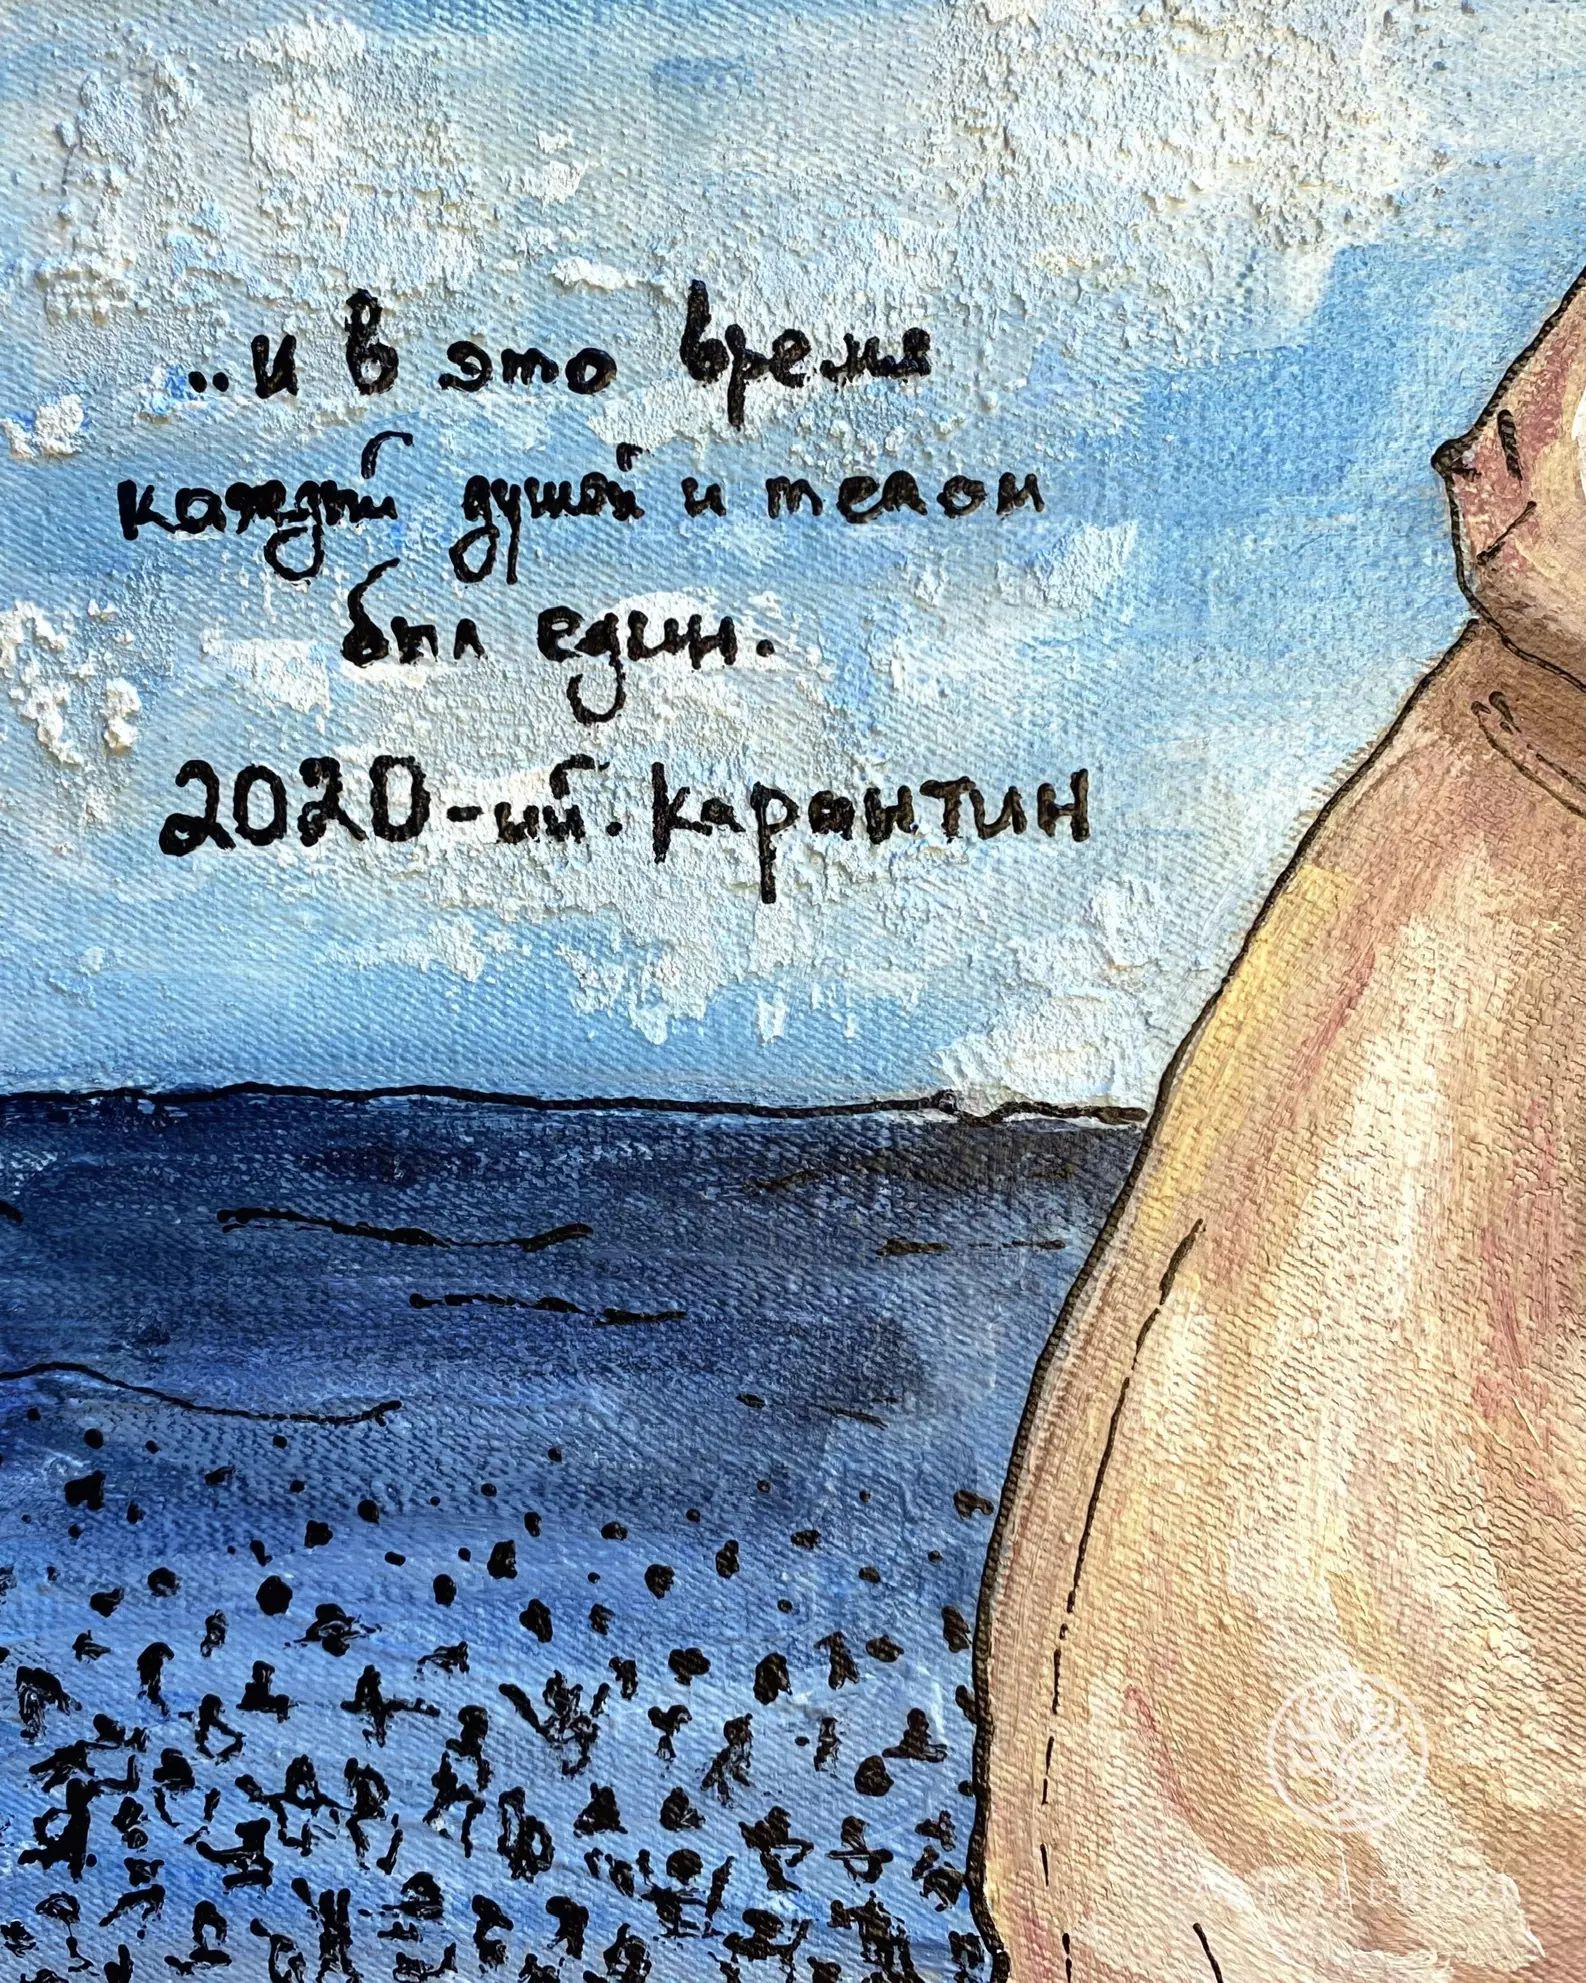 ..и в это время
каждый душой и телом
был един.
2020-ый. карантин